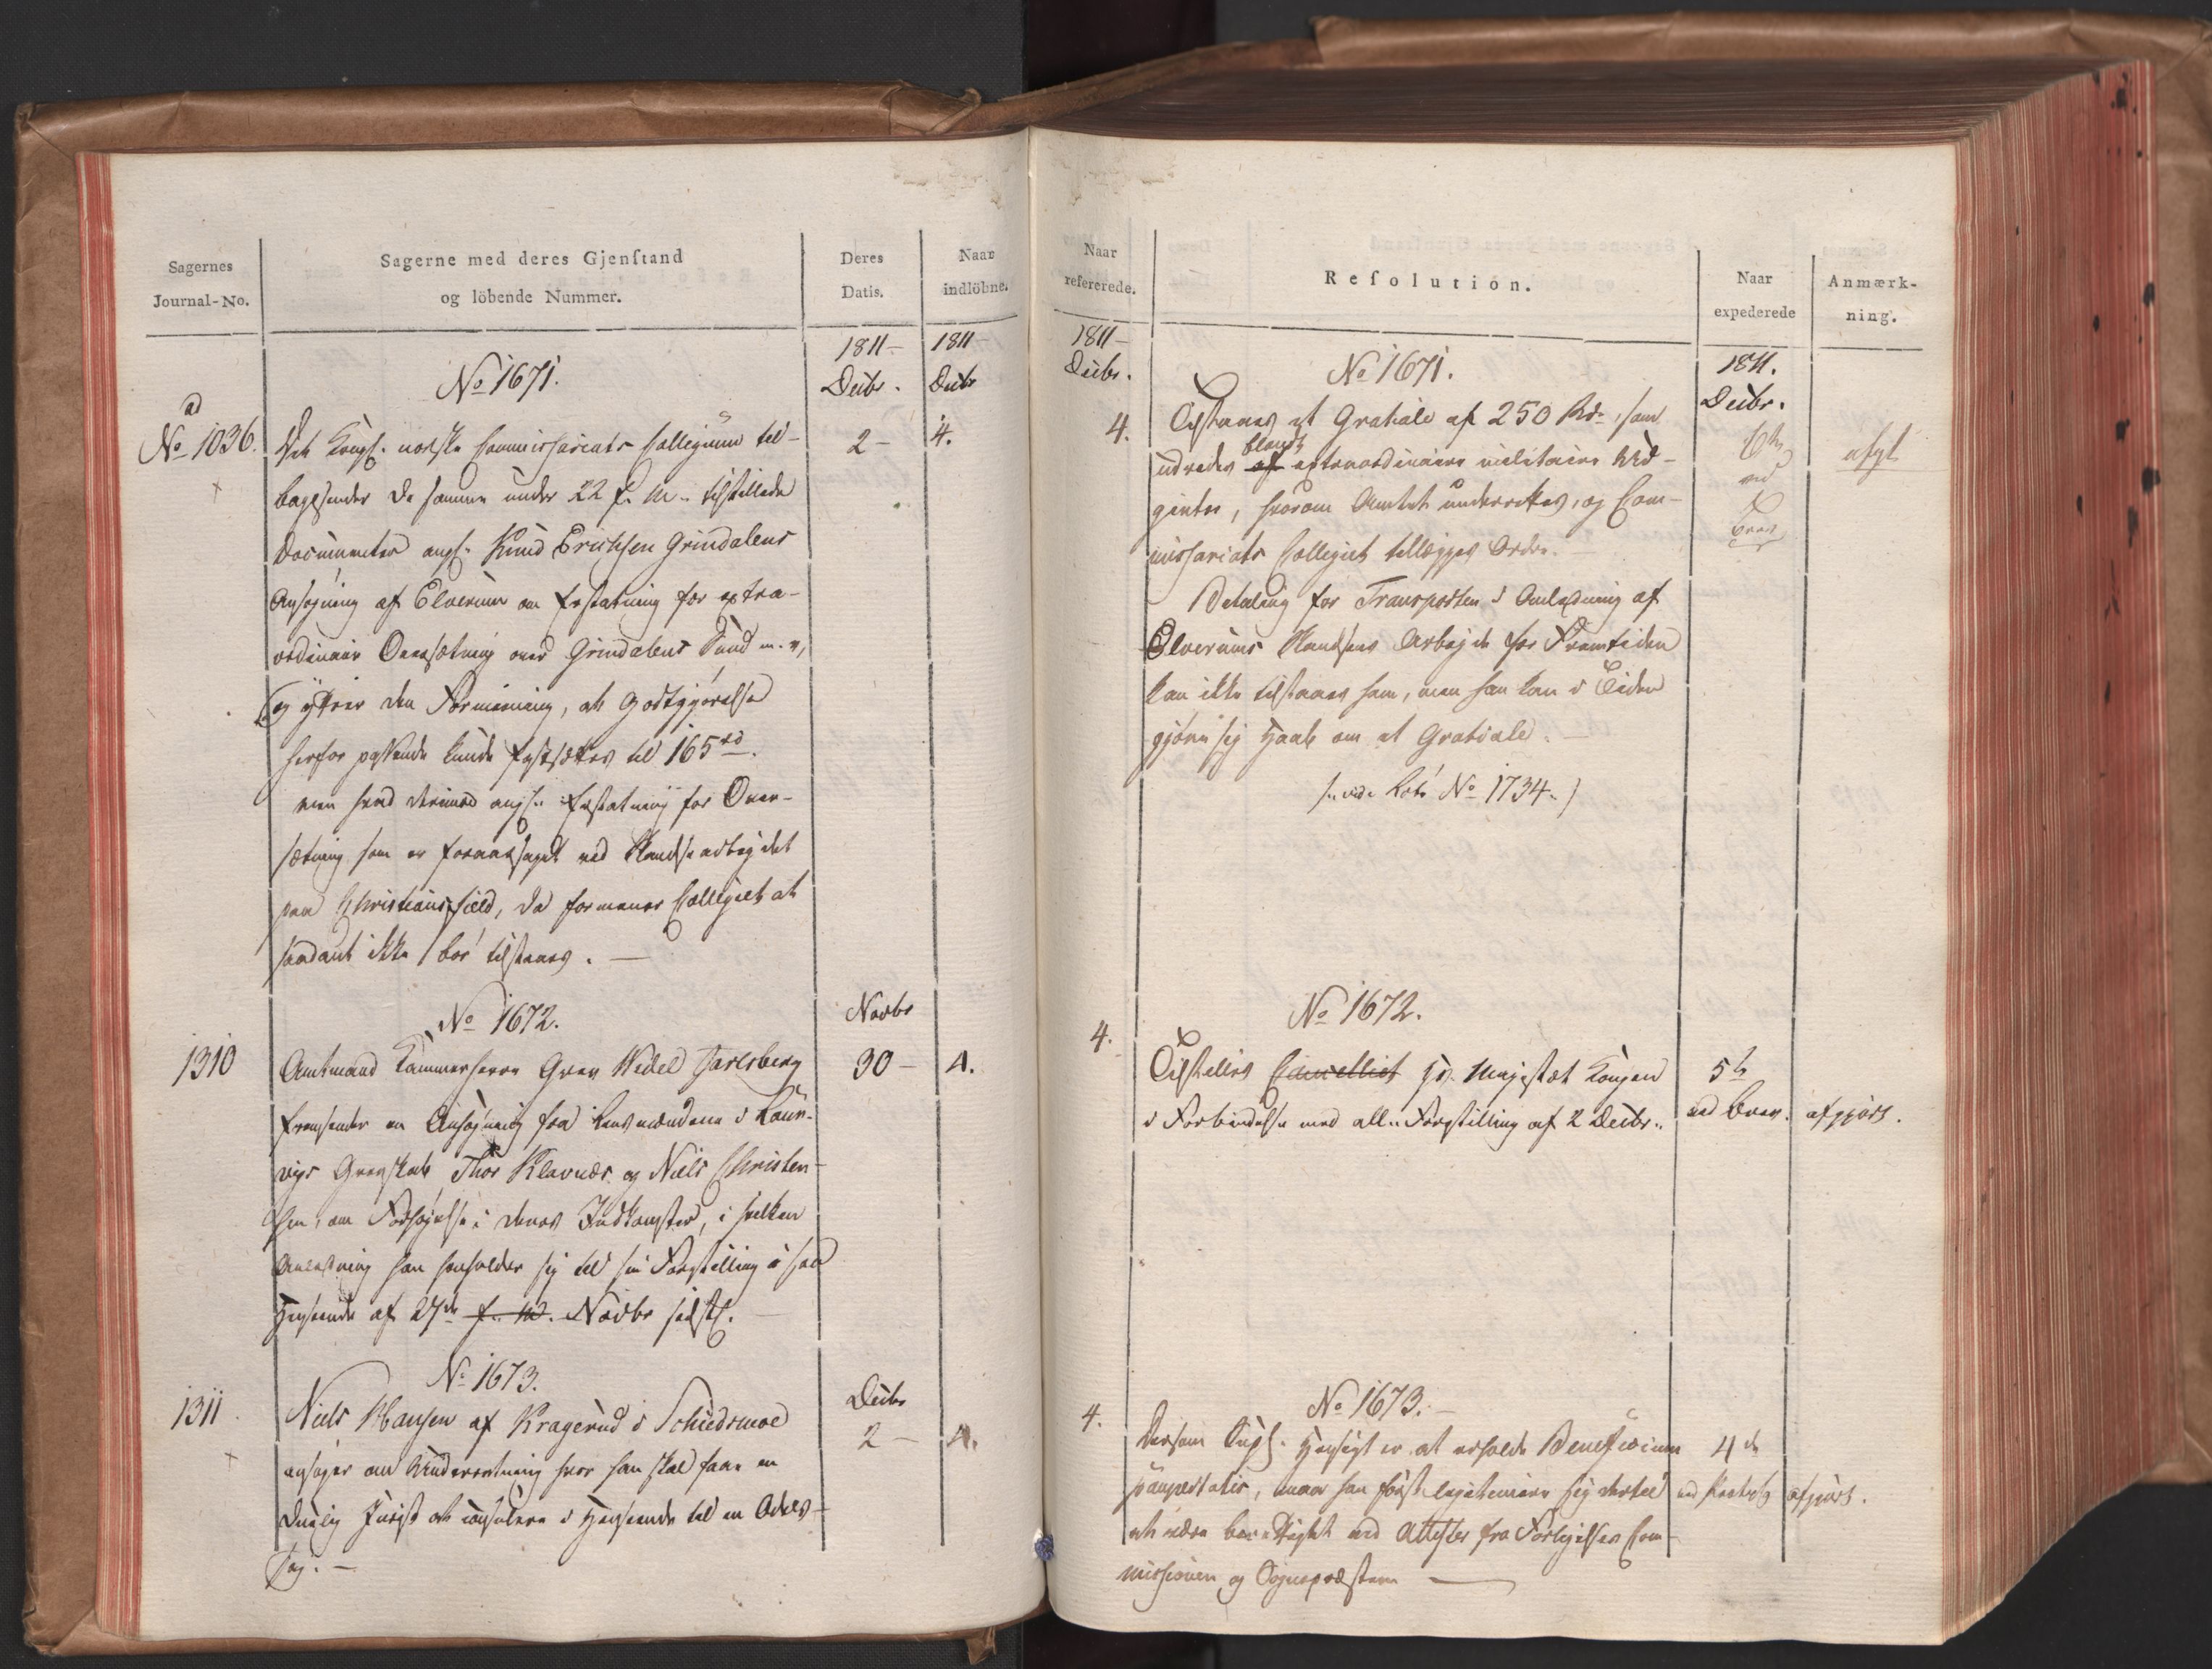 Sagernes
Journal-No.
Sagerne med deres Gjenſtand
og löbende Nummer.
Deres
Datis.
Naar
indlöbne.
1811–
Decbr.
1811–
Decbr
No 1671.
ad
No 1036.
Det Kongl. norske Commissariats Collegium til-
2 –
4.
bagesender de samme under 22 f. M. tilstillede
Documenter angl. Knud Erichsen Grindalens
Ansøgning af Elverum om Erstatning for extra-
ordinair Oversætning over Grindalens Sund m. v,
og yttrer den Formening, at Godtgjørelse
herfor passende kunde fastsættes til 165 rd.
men hvad derimod angl. Erstatning for Over-
sætning som er foraarsaget ved Skandsearbejdet
paa Christiansfield, da formener Collegiet at
saadant ikke bør tilstaaes. –
No 1672.
Novbr
1310
Amtmand Kammerherre Grev Wedel Jarlsberg
30 –
4.
fremsender en Ansøgning fra Lensmændene i Laur-
vigs Grevskab Thor Klavnæs og Niels Christen-
sen, om Forhøjelse i deres Indkomster, i hvilken
Anledning han henholder sig til sin Forestilling i saa
Henseende af 27de f. M. Novbr sidstl.
No 1673.
Decbr
1311
Niels Hansen af Kragerud i Schiedsmoe
2 –
4.
ansøger om Underretning hvor han skal faae en
duelig Jurist at consulere i Henseende til en Odels-
sag. –
Naar
refererede.
Reſolution.
Naar
expederede
Anmærk-
ning.
1811–
Decbr.
1811.
Decbr.
No 1671.
4.
Tilstaaes et Gratiale af 250 Rd., som
blandt
udredes af extraordinaire militaire Ud-
6te
ved
Brev
afgt
givter, hvorom Amtet underrettes, og Com-
missariats Collegiet tillægges Ordre. –
Betaling for Transporten i Anledning af
Elverums Skandses Arbejde for Fremtiden
kan ikke tilstaaes ham, men han kan i Tiden
gjøre sig Haab om et Gratiale. –
No 1734.)
No 1672.
4.
Tilstilles Cancelliet Hs. Majestæt Kongen
5te
i Forbindelse med all. Forestilling af 2 Decbr.
ved Brev.
afgjort.
No 1673. –
4.
Dersom Supl. Hensigt er at erholde Beneficium
4de
paupertatis, maa han først legitimere sig dertil
afgjort.
at være berettiget ved Attester fra Forligelses Com-
missionen og Sognepræsten –